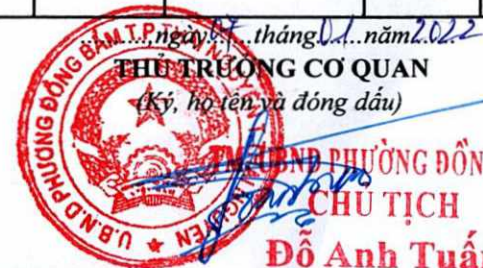 ........, ngày 07 tháng 01 năm 2022
THỦ TRƯỞNG CƠ QUAN
(Ký, họ tên và đóng dấu)
TM. UBND PHƯỜNG ĐỒN
CHỦ TỊCH
Đỗ Anh Tuấ
U.B.N.D PHƯỜNG ĐỒNG BẨM T.P THÁI NGUYÊN